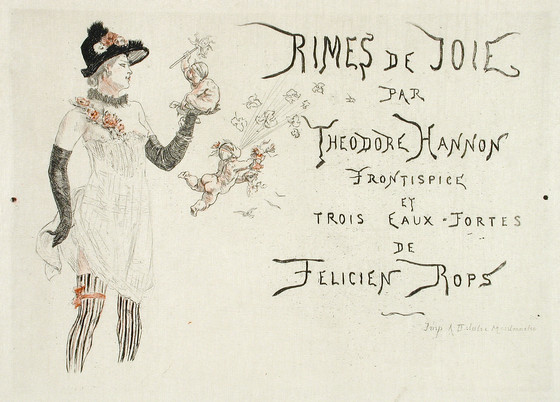 RIMES DE JOIE
PAR
THEODORE HANNON
FRONTISPICE
ET
TROIS EAUX-FORTES
DE
FELICIEN ROPS
Imp. A